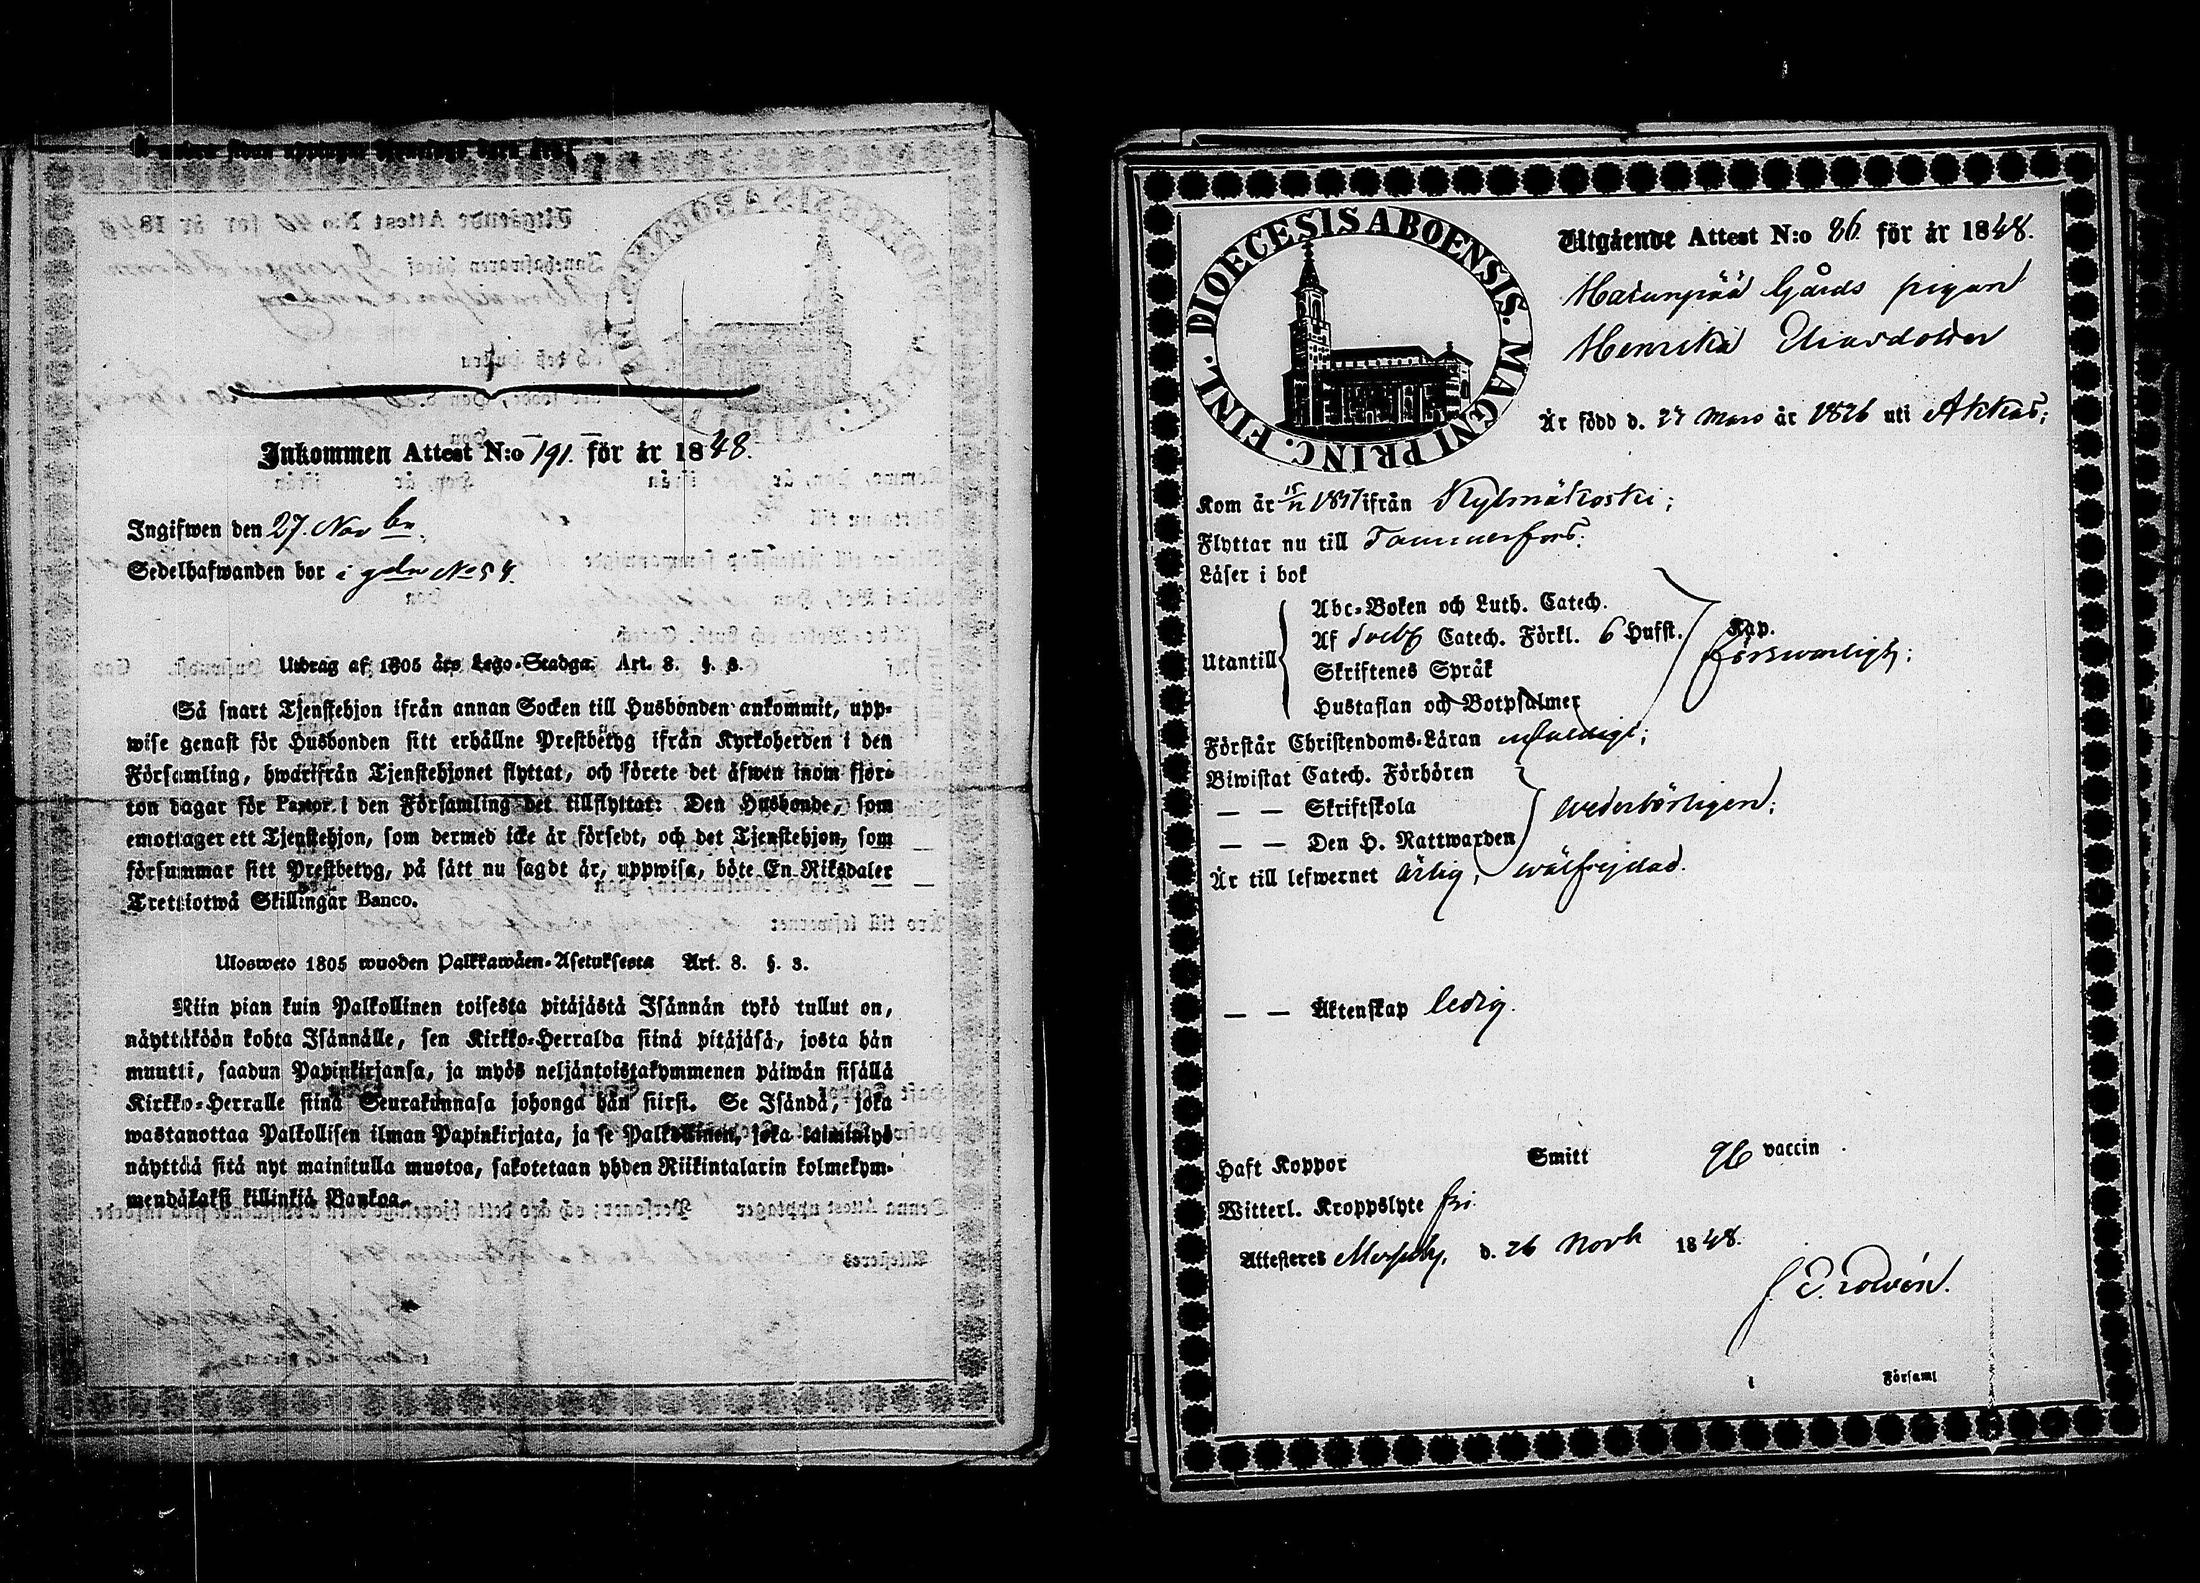 Inkommen Attest N:o 191. för år 1848.
Ingifwen den 27. Novbr.
Sedelhafwanden bor i gdn No 54.
Utdrag af 1805 års Lego-Stadga. Art. 8. §. 3.
Så snart Tjenstehjon ifrån annan Socken till Husbonden ankommit, upp-
wise genast för Husbonden sitt erhållne Prestbetyg ifrån Kyrkoherden i den
Församling, hwarifrån Tjenstehjonet flyttat, och förete det äfwen inom fjor-
ton dagar för Pastor i den Församling det tillflyttat: Den Husbonde, som
emottager ett Tjenstehjon, som dermed icke är försedt, och det Tjenstehjon, som
försummar sitt Prestbetyg, på sätt nu sagdt är, uppwisa, böte En Riksdaler
Trettiotwå Skillingar Banco.
Ulosweto 1805 wuoden Palkkawäen-Asetuksesta Art. 8. §. 3.
Niin pian kuin Palkollinen toisesta pitäjästä Isännän tykö tullut on,
näyttäköön kohta Isännälle, sen Kirkko-Herralda siinä pitäjäsä, josta hän
muutti, saadun Papinkirjansa, ja myös neljäntoistakymmenen päiwän sisällä
Kirkko-Herralle siinä Seurakunnasa johonga hän siirsi. Se Isändä, joka
wastanottaa Palkollisen ilman Papinkirjata, ja se Palkollinen, joka laiminlyö
näyttää sitä nyt mainitulla muotoa, sakotetaan yhden Riikintalarin kolmekym-
mendäkaksi killinkiä Bankoa.
DIOECESIS ABOENSIS. MAGNI PRINC. FINL.
Utgående Attest N:o 86. för år 1848.
Gårds pigan
Henrika Eliasdotter
Är född d. 27 Mars år 1826 uti Akkas;
Kom år 15/11 1847 ifrån Kylmäkoski;
Flyttar nu till Tammerfors;
Läser i bok
Utantill
Abc-Boken och Luth. Catech.
Af Sveb Catech. Förkl. 6 Hufst. Kap.
Skriftenes Språk
Hustaflan och Botpsalmer
försvarligt;
Förstår Christendoms-Läran
Biwistat Catech. Förhören
— — Skriftskola
— — Den H. Nattwarden
wederbörligen;
Är till lefwernet ärlig, wälfrejdad.
— — Äktenskap ledig.
Haft Koppor Smitt vaccin
Witterl. Kroppslyte fri
Attesteres d. 26 Novb 1848.
i Församl